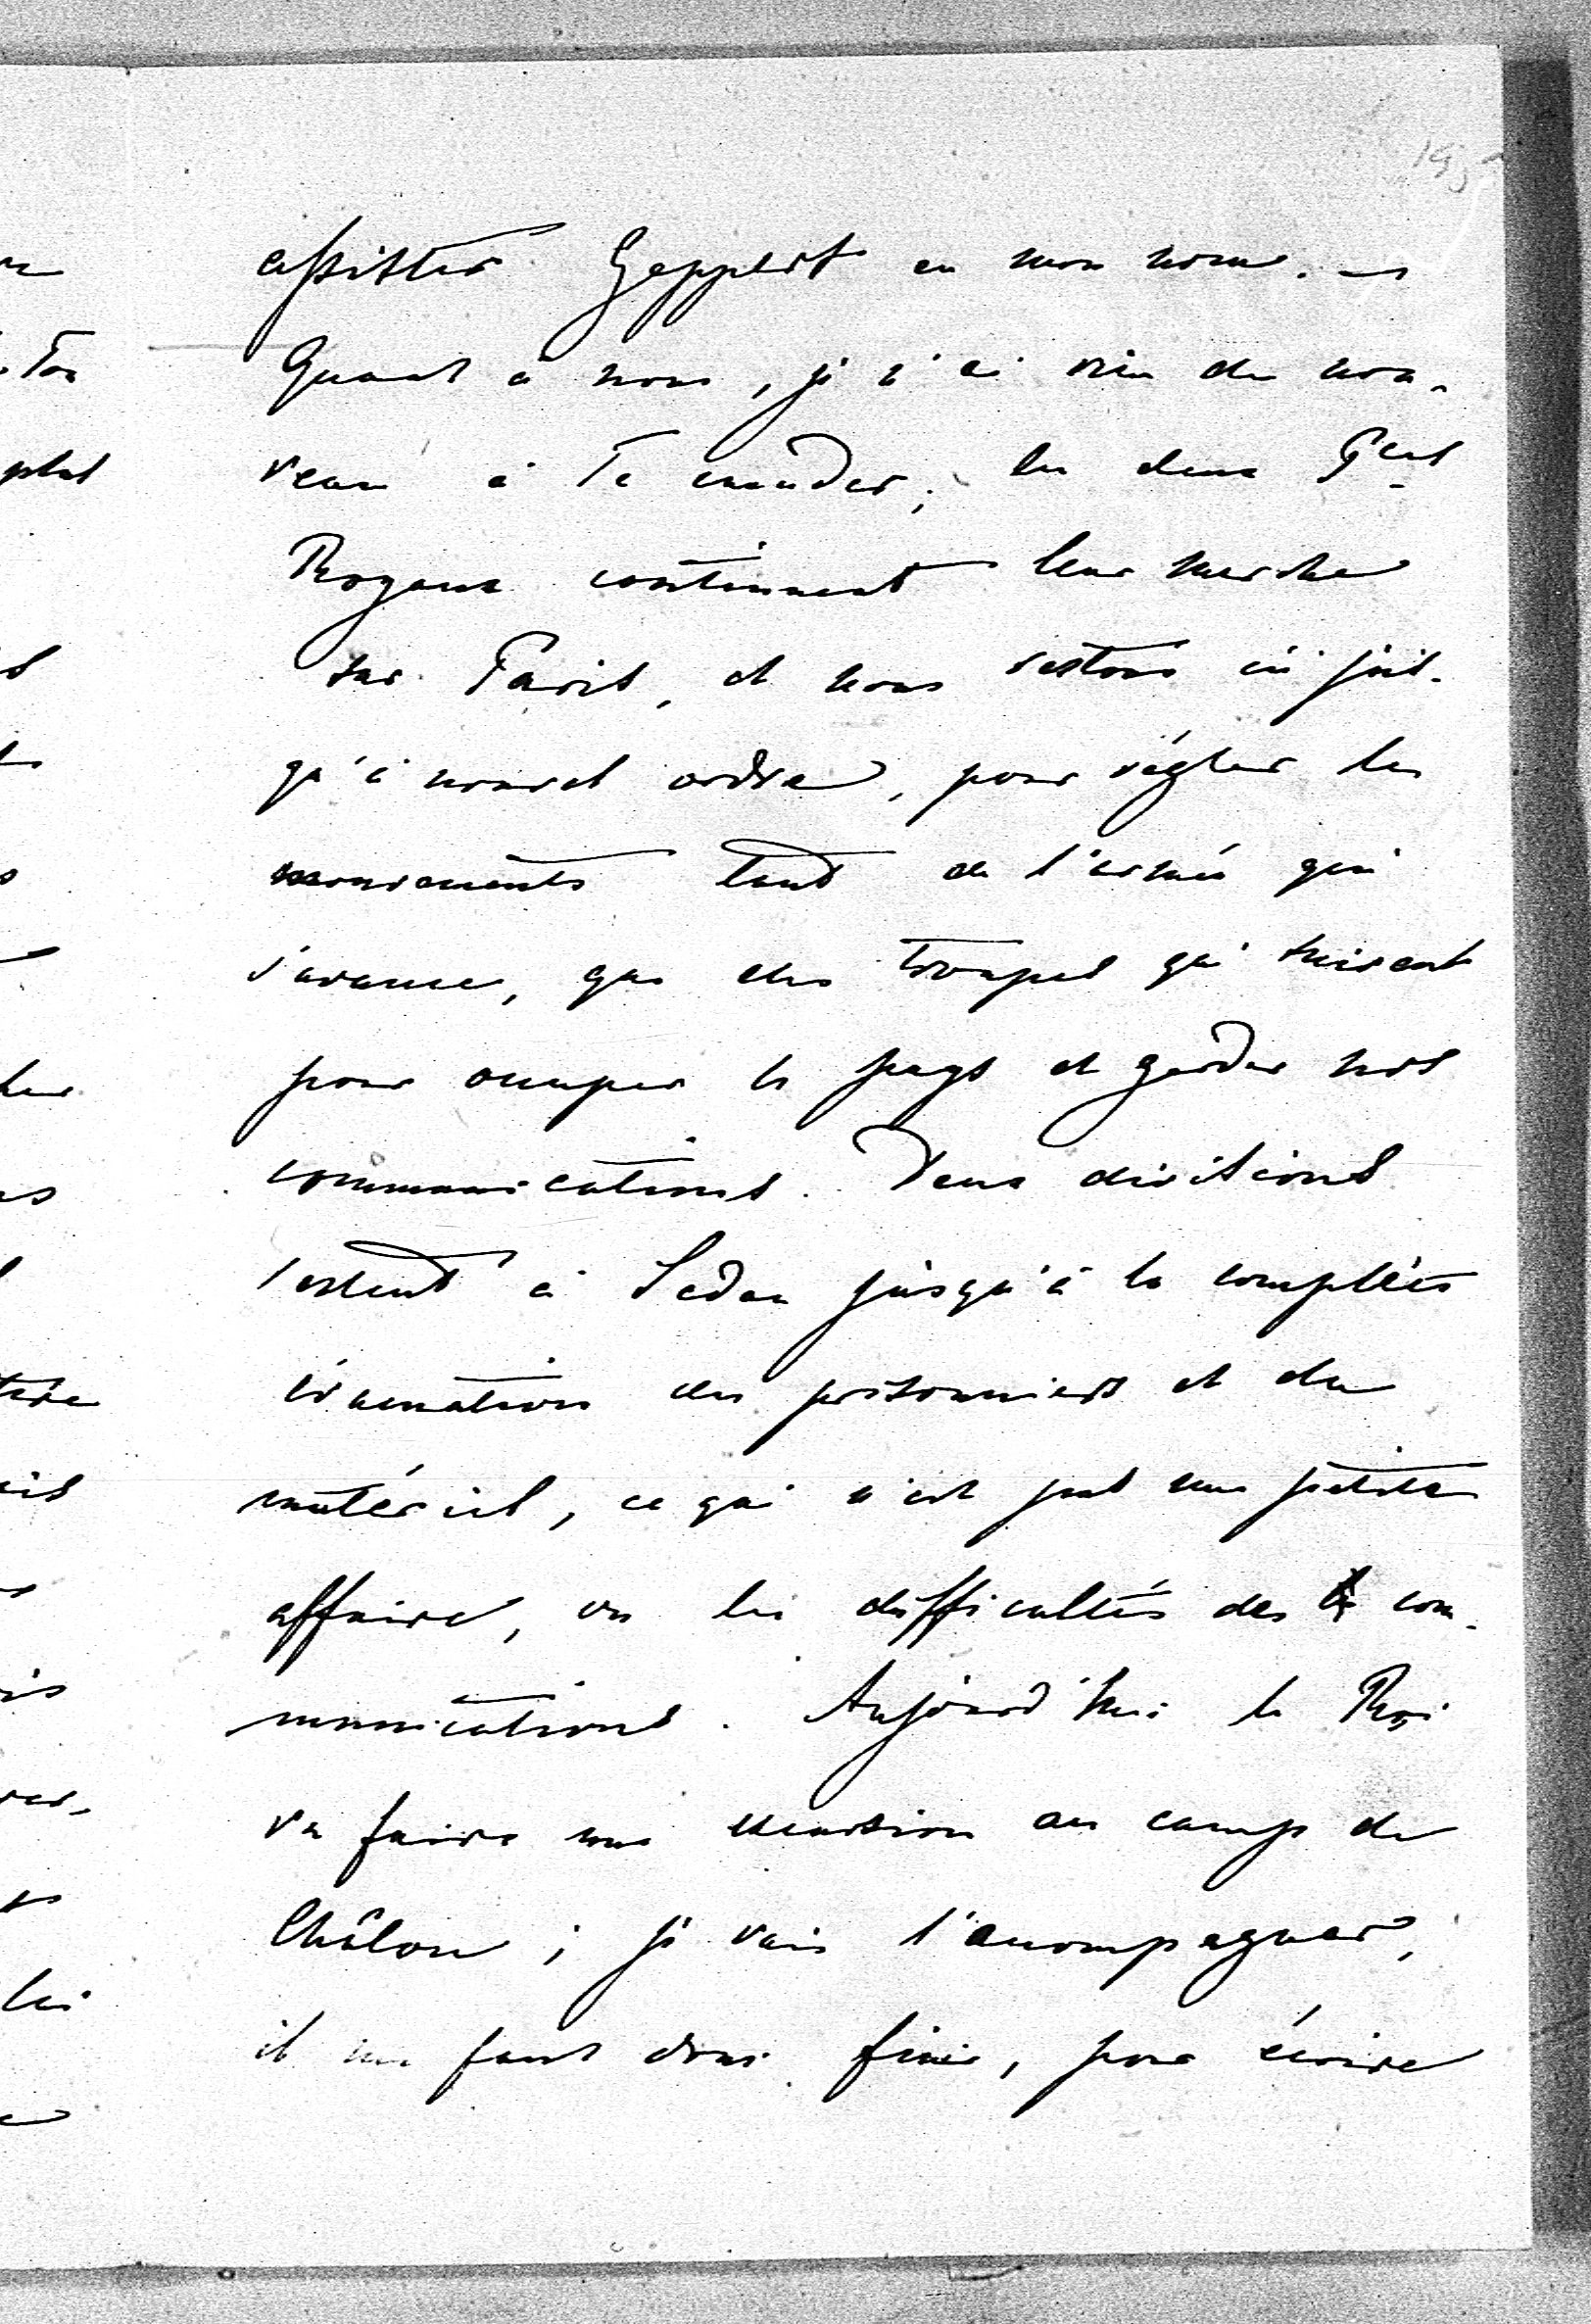 assister Geppert en mon nom. —
Quant à nous, je n'ai rien de nou-
veau à Te mander; les deux Pces
Royaux continuent leur marche
sur Paris, et nous restons ici jus-
qu'à nouvel ordre, pour régler les
mouvements tant de l'armée qui
s'avance, que des troupes qui suivent
pour occuper le pays et garder nos
communications. Deux divisions
restent à Sedan jusqu'à la complète
évacuation des prisonniers et du
matériel, ce qui n'est pas une petite
affaire, vu les difficultés des com-
munications. Aujourd'hui le Roi
va faire une excursion au camp de
Châlon; je vais l'accompagner,
il me faut donc finir, pour écrire